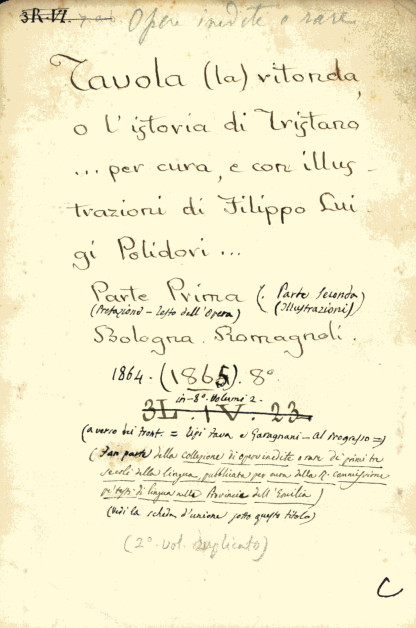 3R.VI. Opere inedite o rare
Tavola (la) ritonda,
o l'istoria di Tristano
... per cura, e con illus-
trazioni di Filippo Lui-
gi Polidori ...
Parte Prima (. Parte Seconda)
(Prefazione - Testo dell'Opera) (Illustrazioni)
Bologna. Romagnoli.
1864. (1865). 8°
in-8°. Volumi 2.
3L. IV. 23
(a verso dei front. = Tipi Fava e Garagnani - Al Progresso =)
(Fan parte della collezione di opere inedite o rare dei primi tre
secoli della lingua, pubblicata per cura della R. Commissione
pe' testi di lingua nelle Provincie dell'Emilia)
(Vedi la scheda d'unione sotto questo titolo)
(2° vol. duplicato)
C